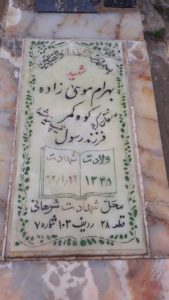 شهید
بهرام موسی زاده
کوه کمر
فرزند رسول
ولادت شهادت
۱۳۴۸
محل شهادت شرهانی
قطعه ۲۸ ردیف ۱۰۳ شماره ۷